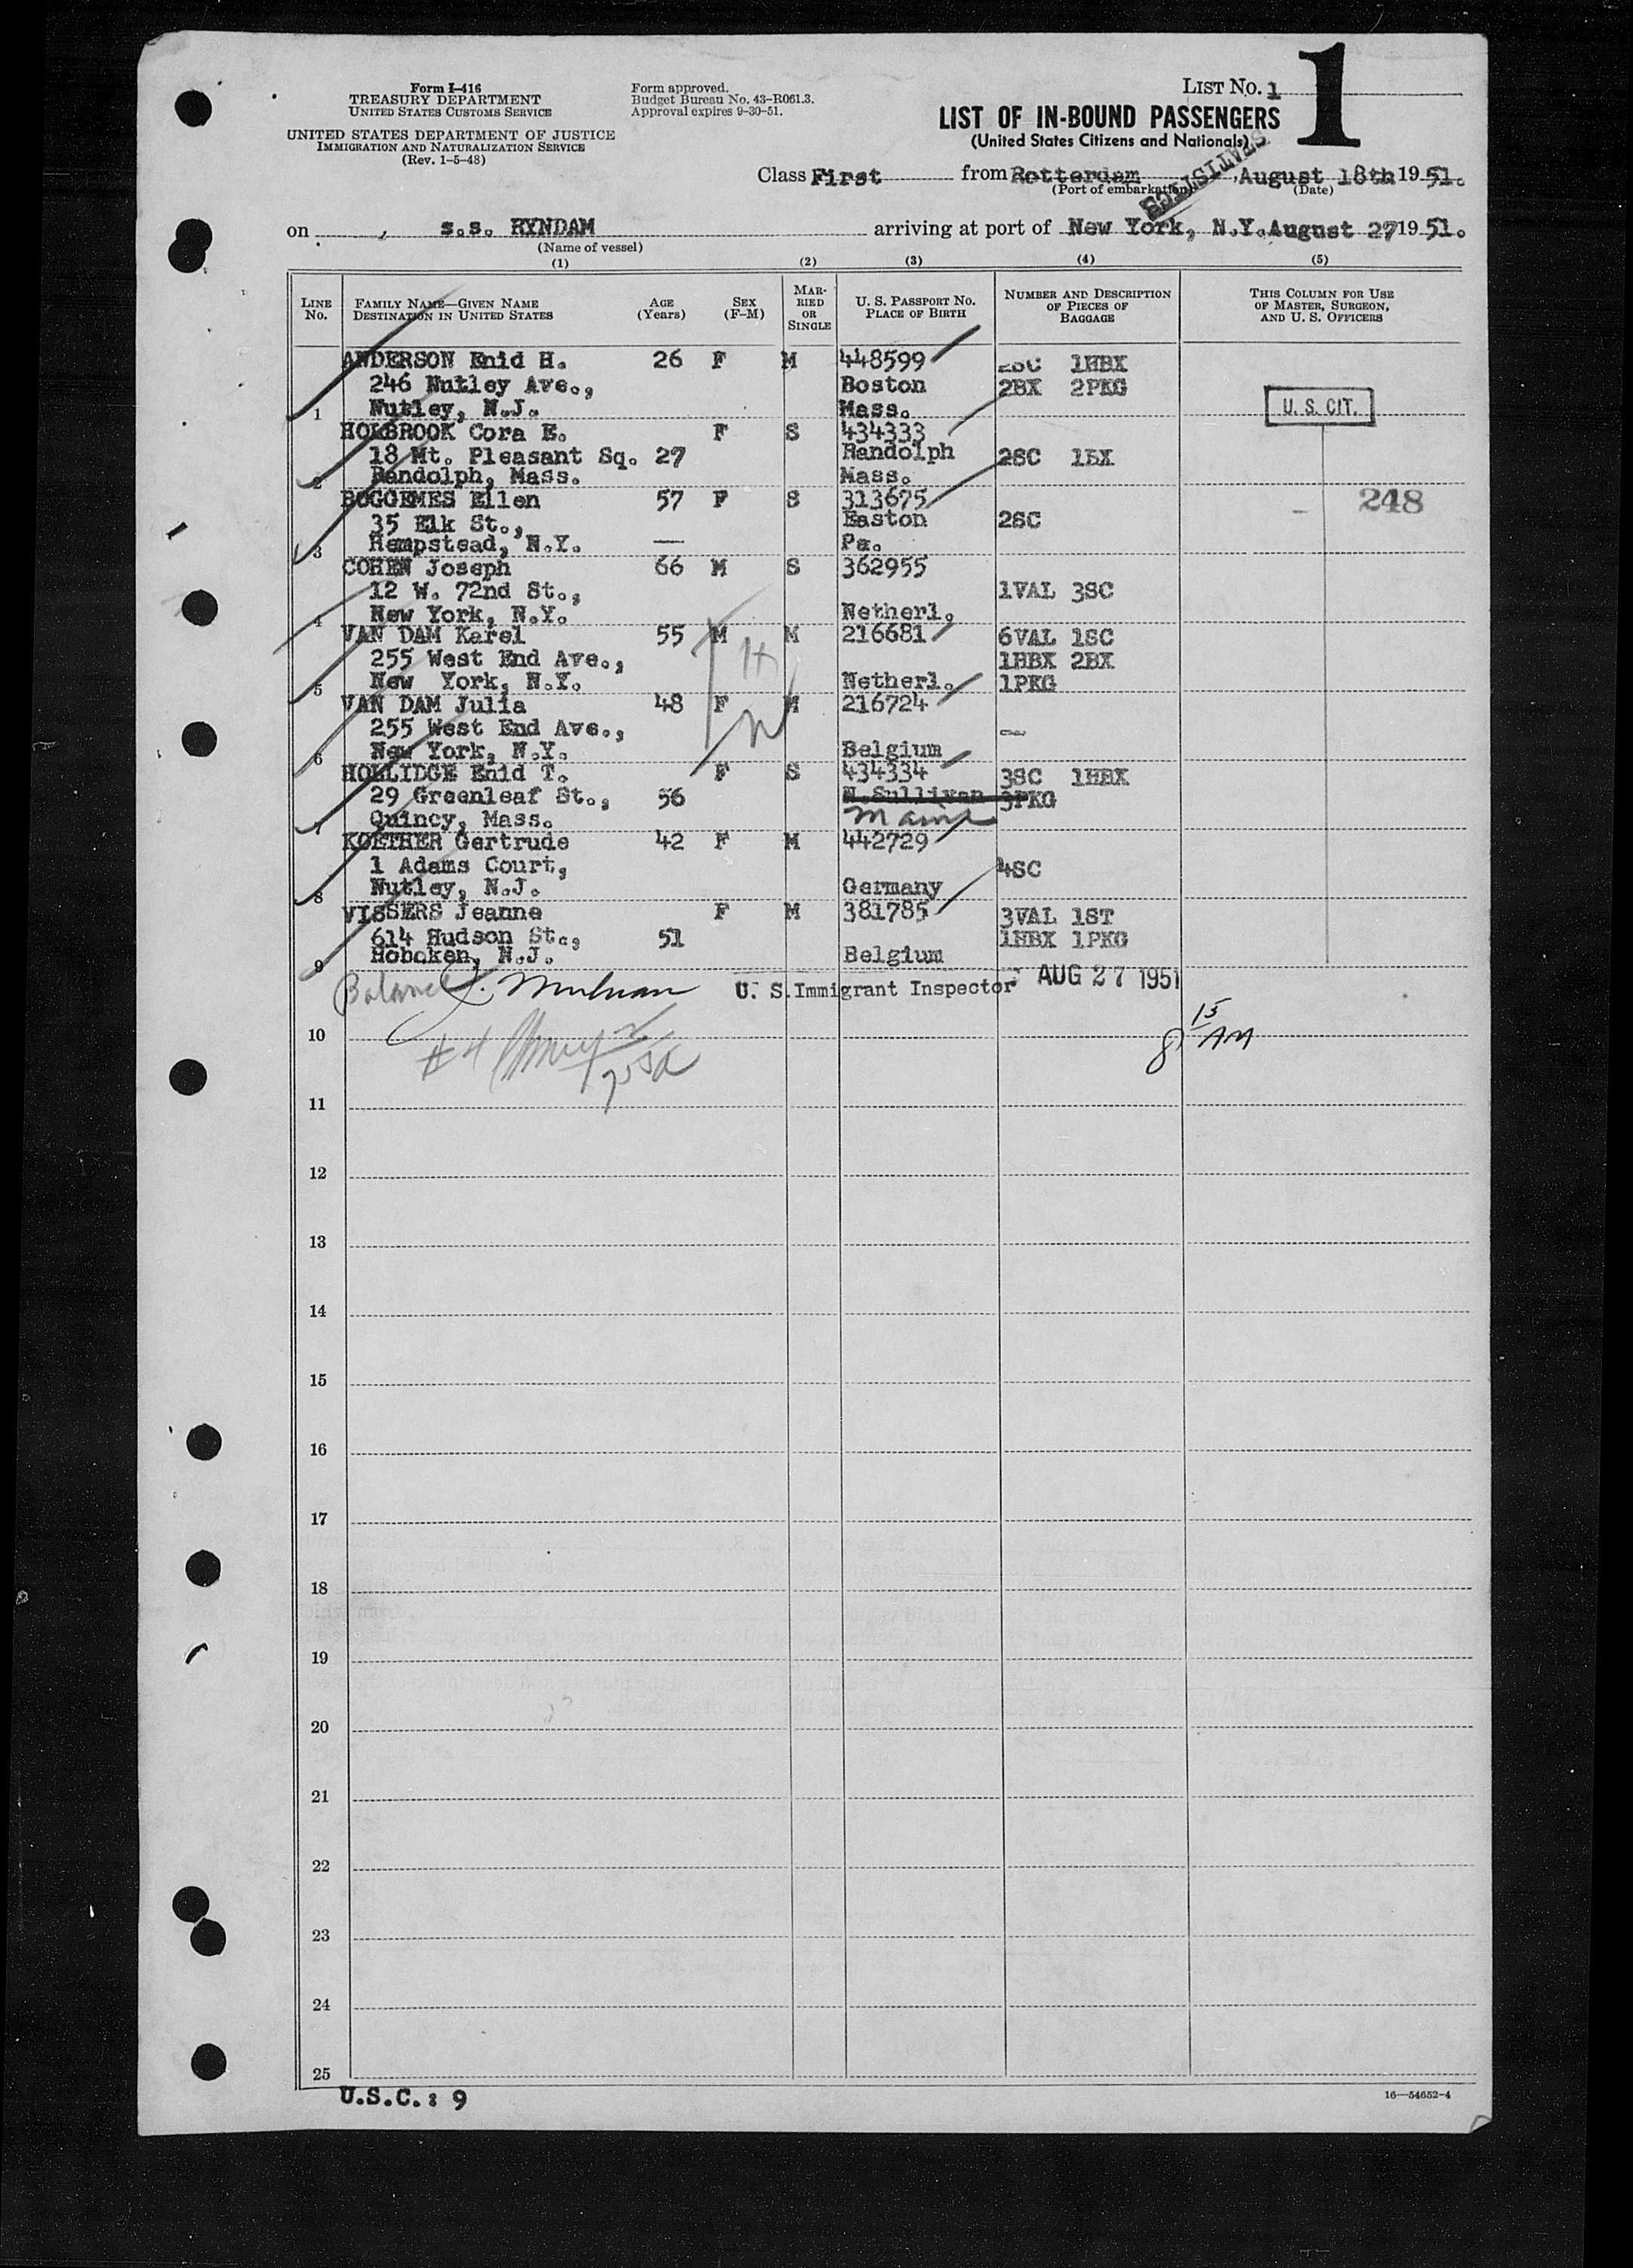 Form I-416
TREASURY DEPARTMENT
UNITED STATES CUSTOMS SERVICE
UNITED STATES DEPARTMENT OF JUSTICE
IMMIGRATION AND NATURALIZATION SERVICE
(Rev. 1-5-48)
Form approved.
Budget Bureau No. 43-R061.3.
Approval expires 9-30-51.
LIST No. 1
1
LIST OF IN-BOUND PASSENGERS
(United States Citizens and Nationals)
STATISTICS
Class First from Rotterdam, August 18th 1951.
(Port of embarkation) (Date)
on s.s. RYNDAM arriving at port of New York, N.Y. August 27 1951.
(Name of vessel)
(1) (2) (3) (4) (5)
LINE No. FAMILY NAME—GIVEN NAME DESTINATION IN UNITED STATES AGE (Years) SEX (F-M) MARRIED OR SINGLE U. S. PASSPORT NO. PLACE OF BIRTH NUMBER AND DESCRIPTION OF PIECES OF BAGGAGE THIS COLUMN FOR USE OF MASTER, SURGEON, AND U. S. OFFICERS
ANDERSON Enid H. 26 F M 448599 2SC 1HBX
246 Nutley Ave., Boston 2BX 2PKG
1 Nutley, N.J. Mass. U. S. CIT.
HOLBROOK Cora E. F S 434333
18 Mt. Pleasant Sq. 27 Randolph 2SC 1BX
2 Randolph, Mass. Mass.
BOGGEMES Ellen 57 F S 313675 248
35 Elk St., Easton 2SC
3 Hempstead, N.Y. Pa.
COHEN Joseph 66 M S 362955
12 W. 72nd St., 1VAL 3SC
4 New York, N.Y. Netherl.
VAN DAM Karel 55 M M 216681 6VAL 1SC
255 West End Ave., 1HBX 2BX
5 New York, N.Y. Netherl. 1PKG
VAN DAM Julia 48 F M 216724
255 West End Ave., —
6 New York, N.Y. Belgium
HOLLIDGE Enid T. F S 434334 3SC 1HBX
29 Greenleaf St., 56 N.Sullivan 3PKG
7 Quincy, Mass. Maine
KOETHER Gertrude 42 F M 442729
1 Adams Court, 4SC
8 Nutley, N.J. Germany
VISSERS Jeanne F M 381785 3VAL 1ST
614 Hudson St., 51 1HBX 1PKG
9 Hoboken, N.J. Belgium
U. S. Immigrant Inspector AUG 27 1951
8 15 AM
10
11
12
13
14
15
16
17
18
19
20
21
22
23
24
25
U.S.C.: 9
16—54652-4